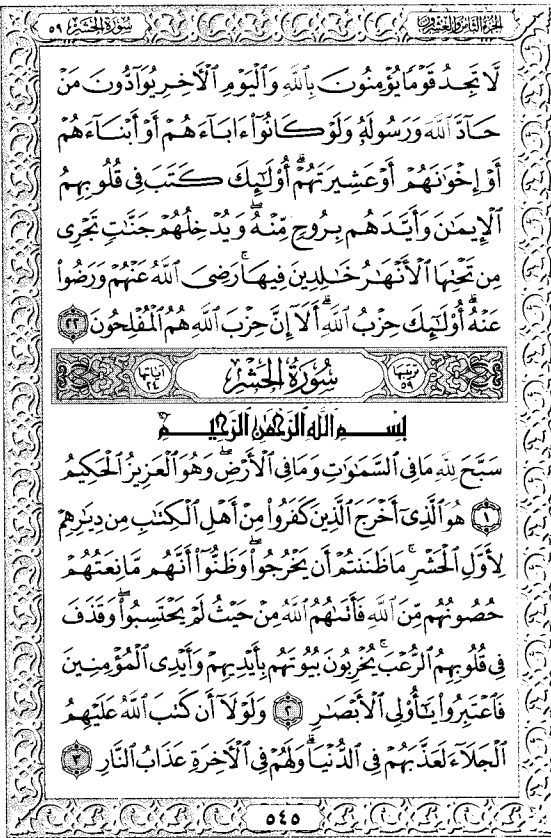 الجزء الثامن والعشرون سورة الحشر ٥٩
لَّا تَجِدُ قَوْمًا يُؤْمِنُونَ بِٱللَّهِ وَٱلْيَوْمِ ٱلْأَخِرِ يُوَآدُّونَ مَنْ
حَآدَّ ٱللَّهَ وَرَسُولَهُۥ وَلَوْ كَانُوٓا۟ ءَابَآءَهُمْ أَوْ أَبْنَآءَهُمْ
أَوْ إِخْوَٰنَهُمْ أَوْ عَشِيرَتَهُمْ ۚ أُو۟لَٰٓئِكَ كَتَبَ فِى قُلُوبِهِمُ
ٱلْإِيمَٰنَ وَأَيَّدَهُم بِرُوحٍ مِّنْهُ ۖ وَيُدْخِلُهُمْ جَنَّٰتٍ تَجْرِى
مِن تَحْتِهَا ٱلْأَنْهَٰرُ خَٰلِدِينَ فِيهَا ۚ رَضِىَ ٱللَّهُ عَنْهُمْ وَرَضُوا۟
عَنْهُ ۚ أُو۟لَٰٓئِكَ حِزْبُ ٱللَّهِ ۚ أَلَآ إِنَّ حِزْبَ ٱللَّهِ هُمُ ٱلْمُفْلِحُونَ ٢٢
ترتيبها ٥٩ سُورَةُ الحَشْرِ آياتها ٢٤
بِسْمِ ٱللَّهِ ٱلرَّحْمَٰنِ ٱلرَّحِيمِ
سَبَّحَ لِلَّهِ مَا فِى ٱلسَّمَٰوَٰتِ وَمَا فِى ٱلْأَرْضِ ۖ وَهُوَ ٱلْعَزِيزُ ٱلْحَكِيمُ
١ هُوَ ٱلَّذِىٓ أَخْرَجَ ٱلَّذِينَ كَفَرُوا۟ مِنْ أَهْلِ ٱلْكِتَٰبِ مِن دِيَٰرِهِمْ
لِأَوَّلِ ٱلْحَشْرِ ۚ مَا ظَنَنتُمْ أَن يَخْرُجُوا۟ ۖ وَظَنُّوٓا۟ أَنَّهُم مَّانِعَتُهُمْ
حُصُونُهُم مِّنَ ٱللَّهِ فَأَتَىٰهُمُ ٱللَّهُ مِنْ حَيْثُ لَمْ يَحْتَسِبُوا۟ ۖ وَقَذَفَ
فِى قُلُوبِهِمُ ٱلرُّعْبَ ۚ يُخْرِبُونَ بُيُوتَهُم بِأَيْدِيهِمْ وَأَيْدِى ٱلْمُؤْمِنِينَ
فَٱعْتَبِرُوا۟ يَٰٓأُو۟لِى ٱلْأَبْصَٰرِ ٢ وَلَوْلَآ أَن كَتَبَ ٱللَّهُ عَلَيْهِمُ
ٱلْجَلَآءَ لَعَذَّبَهُمْ فِى ٱلدُّنْيَا ۖ وَلَهُمْ فِى ٱلْأَخِرَةِ عَذَابُ ٱلنَّارِ ٣
٥٤٥